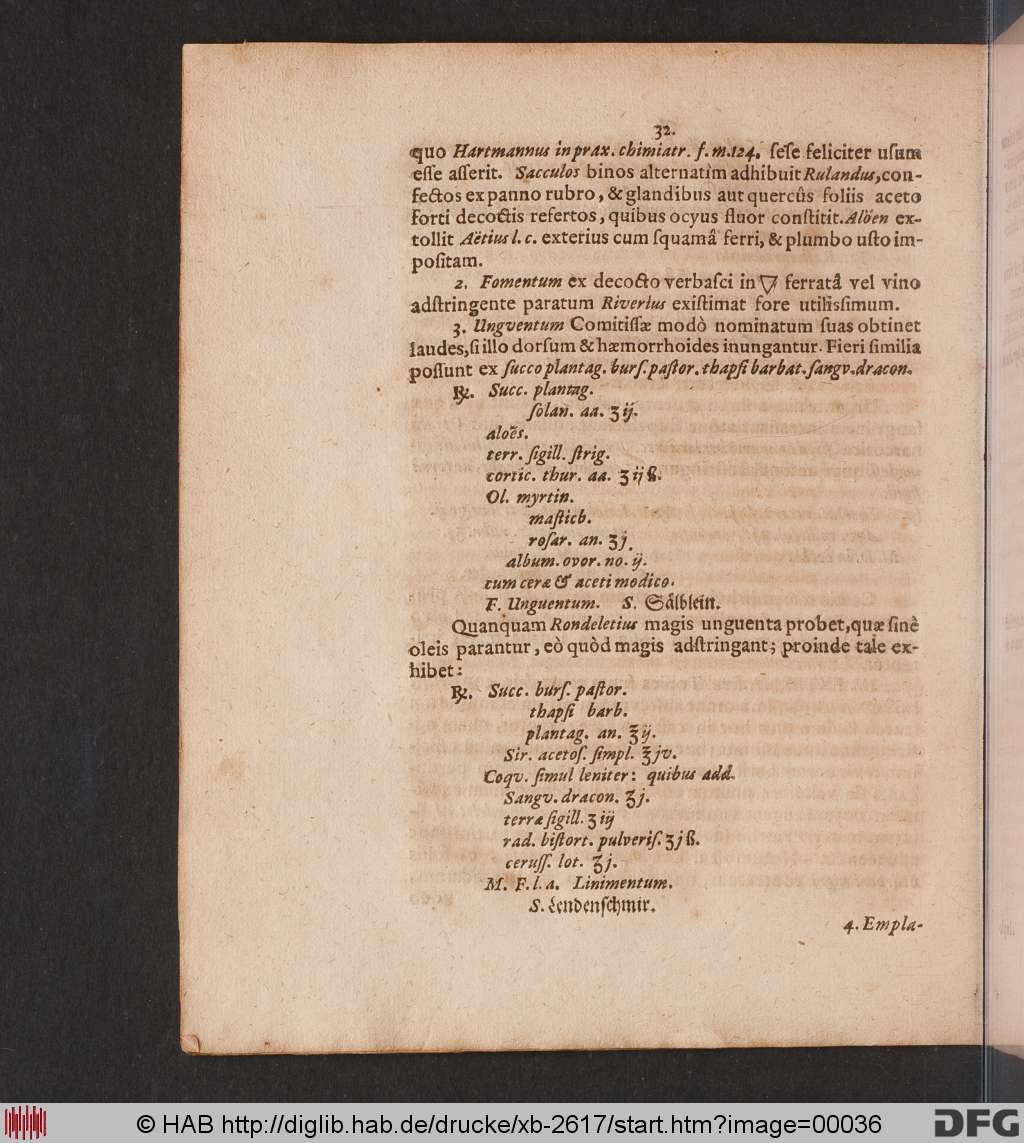 32.
quo Hartmannus in prax. chimiatr. f. m. 124. ſeſe feliciter uſum
eſſe aſſerit. Sacculos binos alternatìm adhibuit Rulandus, con-
fectos ex panno rubro, & glandibus aut quercûs foliis aceto
forti decoctis refertos, quibus ocyus fluor conſtitit. Aloën ex-
tollit Aëtius l. c. exterius cum ſquamâ ferri, & plumbo uſto im-
poſitam.
2. Fomentum ex decocto verbaſci in 🜄 ferratâ vel vino
adſtringente paratum Riverius exiſtimat fore utiliſſimum.
3. Ungventum Comitiſſæ modò nominatum ſuas obtinet
laudes, ſi illo dorſum & hæmorrhoides inungantur. Fieri ſimilia
poſſunt ex ſucco plantag. burſ. paſtor. thapſi barbat. ſangv. dracon.
℞. Succ. plantag.
ſolan. aa. ʒ ij.
aloës.
terr. ſigill. ſtrig.
cortic. thur. aa. ʒ ij ß.
Ol. myrtin.
maſtich.
roſar. an. ʒj.
album. ovor. no. ij.
cum ceræ & aceti modico.
F. Unguentum. S. Sälblein.
Quanquam Rondeletius magis unguenta probet, quæ ſinè
oleis parantur, eò quòd magis adſtringant; proinde tale ex-
hibet:
℞. Succ. burſ. paſtor.
thapſi barb.
plantag. an. ℥ ij.
Sir. acetoſ. ſimpl. ℥ jv.
Coqv. ſimul leniter: quibus add.
Sangv. dracon. ℥j.
terræ ſigill. ʒ iij
rad. biſtort. pulveriſ. ʒj ß.
ceruſſ. lot. ℥j.
M. F. l. a. Linimentum.
S. Lendenſchmir.
4. Empla-
© HAB http://diglib.hab.de/drucke/xb-2617/start.htm?image=00036
DFG